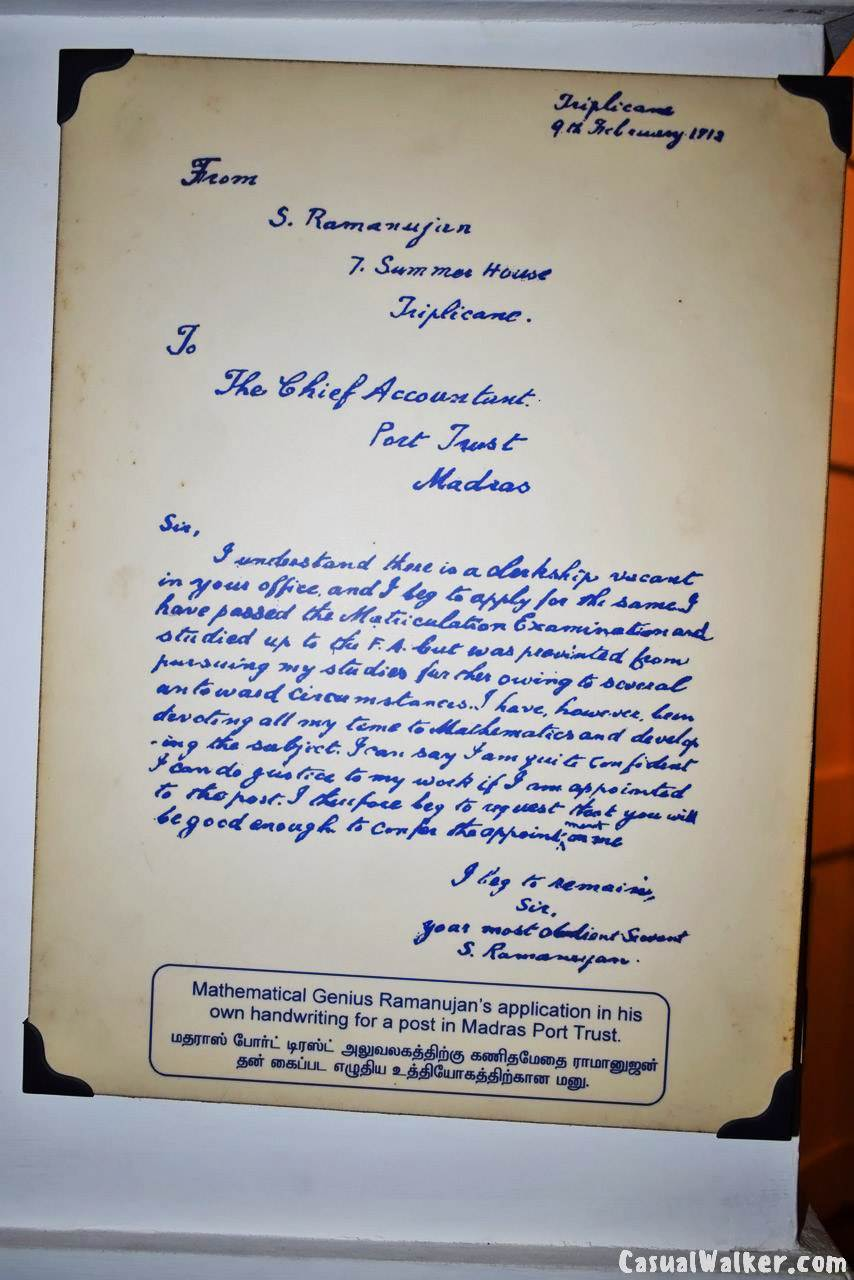 Triplicane
9th February 1912
From
S. Ramanujan
7. Summer House
Triplicane.
To
The Chief Accountant.
Port Trust
Madras
Sir,
I understand there is a clerkship vacant
in your office, and I beg to apply for the same. I
have passed the Matriculation Examination and
studied up to the F.A. but was prevented from
pursuing my studies further owing to several
untoward circumstances. I have, however, been
devoting all my time to Mathematics and develop
-ing the subject. I can say I am quite confident
I can do justice to my work if I am appointed
to the post. I therefore beg to request that you will
be good enough to confer the appointment on me
I beg to remain,
Sir,
your most obedient Servant
S. Ramanujan.
Mathematical Genius Ramanujan's application in his
own handwriting for a post in Madras Port Trust.
மதராஸ் போர்ட் டிரஸ்ட் அலுவலகத்திற்கு கணிதமேதை ராமானுஜன்
தன் கைப்பட எழுதிய உத்தியோகத்திற்கான மனு.
CasualWalker.com